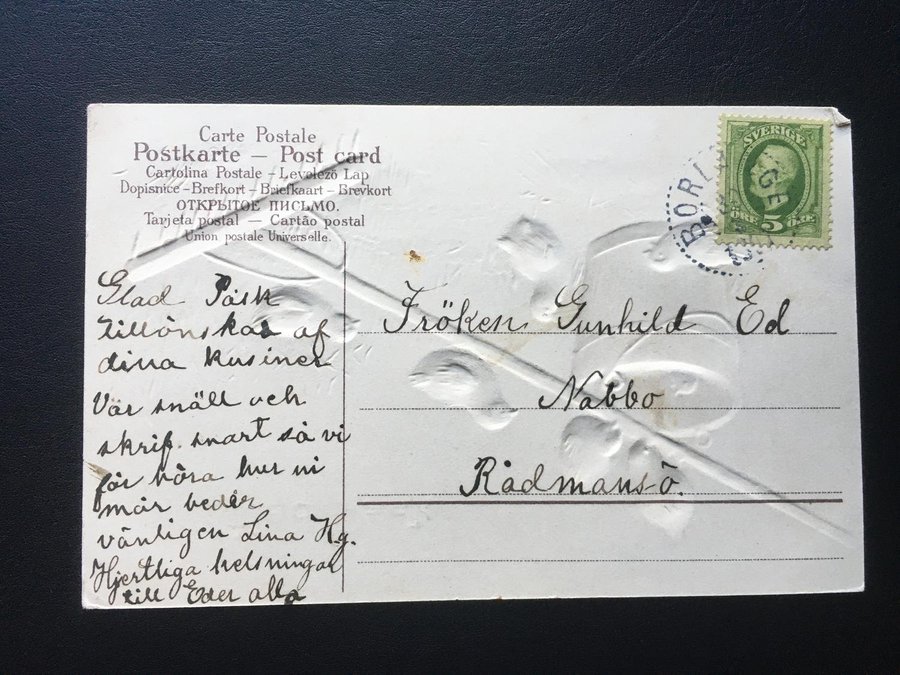 Carte Postale
Postkarte — Post card
Cartolina Postale - Levelező Lap
Dopisnice - Brefkort - Briefkaart - Brevkort
ОТКРЫТОЕ ПИСЬМО.
Tarjeta postal — Cartão postal
Union postale Universelle.
SVERIGE
ÖRE 5 ÖRE
BORLÄNGE
Glad Påsk
tillönskas af
dina kusiner
Vär snäll och
skrif snart så vi
får höra hur ni
mår beder
vänligen Lina Hg.
Hjertliga helsningar
till Eder alla
Fröken Gunhild Ed
Nabbo
Rådmansö.